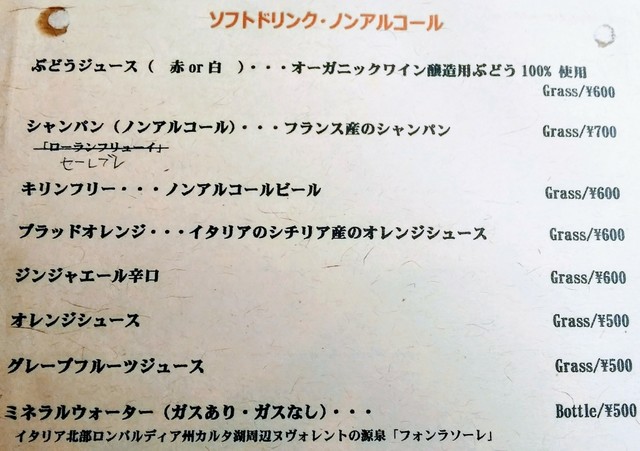 ソフトドリンク・ノンアルコール
ぶどうジュース（　赤 or 白　）・・・オーガニックワイン醸造用ぶどう 100% 使用
Grass/¥600
シャンパン（ノンアルコール）・・・フランス産のシャンパン Grass/¥700
「ローランフリューイ」
セーレブレ
キリンフリー・・・ノンアルコールビール Grass/¥600
ブラッドオレンジ・・・イタリアのシチリア産のオレンジシュース Grass/¥600
ジンジャエール辛口 Grass/¥600
オレンジシュース Grass/¥500
グレープフルーツジュース Grass/¥500
ミネラルウォーター（ガスあり・ガスなし）・・・ Bottle/¥500
イタリア北部ロンバルディア州カルタ湖周辺ヌヴォレントの源泉「フォンラソーレ」